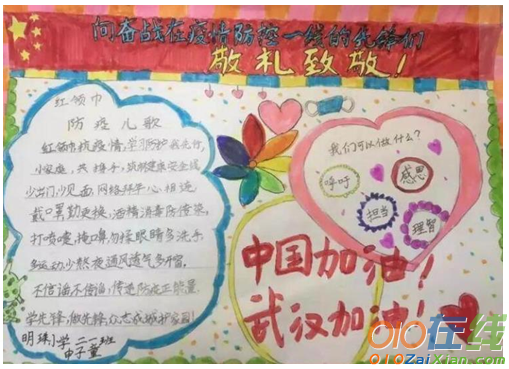 向奋战在疫情防控一线的先锋们
敬礼致敬！
红领巾
防疫儿歌
红领巾抗疫情,学习防护我先行,
小家庭,共携手,筑牢健康安全线
少出门少见面,网络联平心相连
戴口罩勤更换,酒精消毒防传染,
打喷嚏,掩口鼻,勿揉眼睛多洗手,
多运动少熬夜通风透气多开窗,
不信谣不传谣,传递防疫正能量
学先锋,做先锋,众志成城护家园!
明琪小学 二一班
申子童
我们可以做什么?
呼吁
感恩
担当
理智
中国加油！
武汉加油！
010在线
010ZaiXian.Com